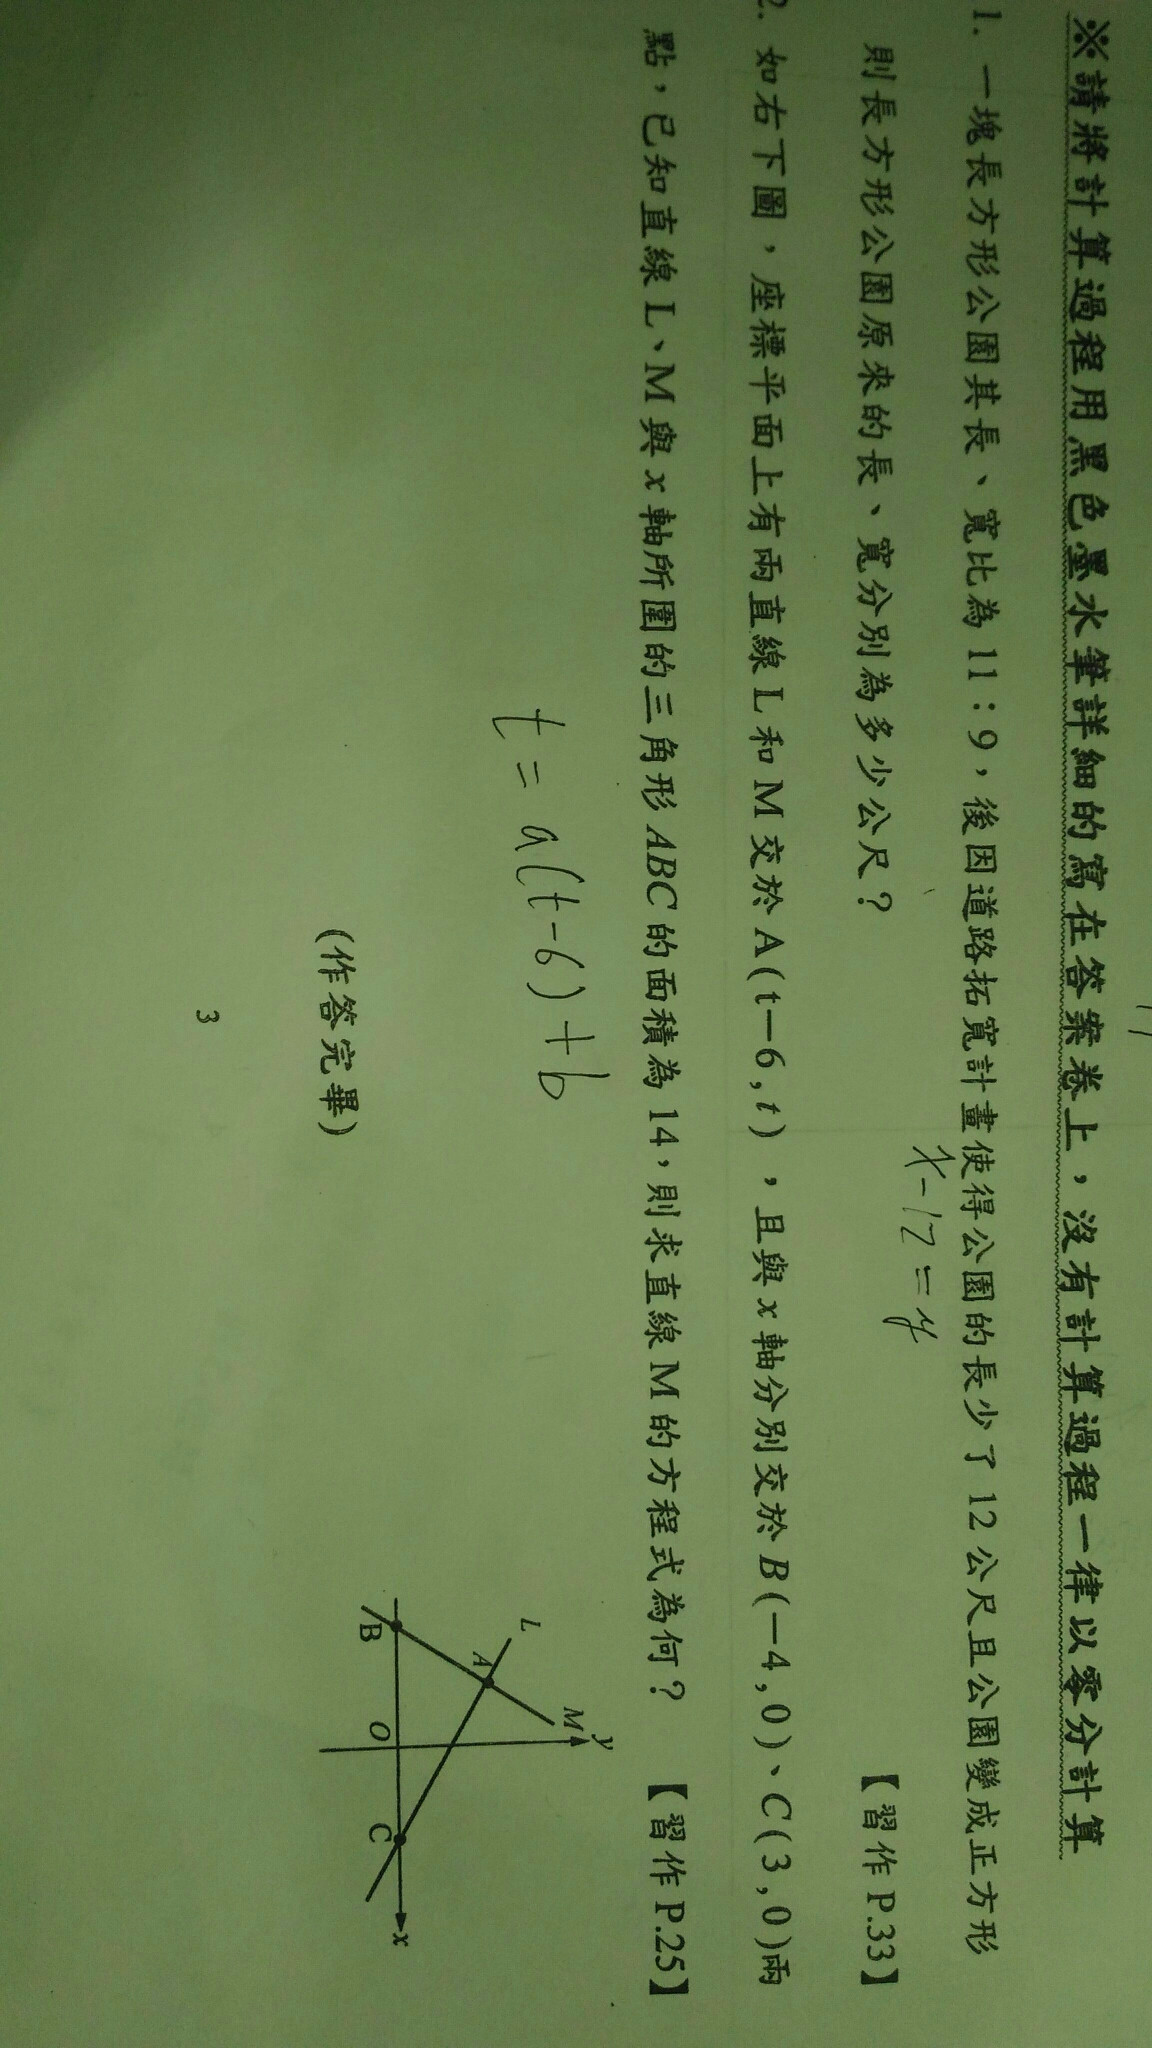 ※請將計算過程用黑色墨水筆詳細的寫在答案卷上，沒有計算過程一律以零分計算
1. 一塊長方形公園其長、寬比為 11：9，後因道路拓寬計畫使得公園的長少了 12 公尺且公園變成正方形
x-12=y
則長方形公園原來的長、寬分別為多少公尺？ 【習作 P.33】
2. 如右下圖，座標平面上有兩直線 L 和 M 交於 A(t－6,t)，且與 x 軸分別交於 B(－4,0)、C(3,0)兩
點，已知直線 L、M 與 x 軸所圍的三角形 ABC 的面積為 14，則求直線 M 的方程式為何？ 【習作 P.25】
t=a(t-6)+b
L
A
M
y
B
O
C
x
(作答完畢)
3